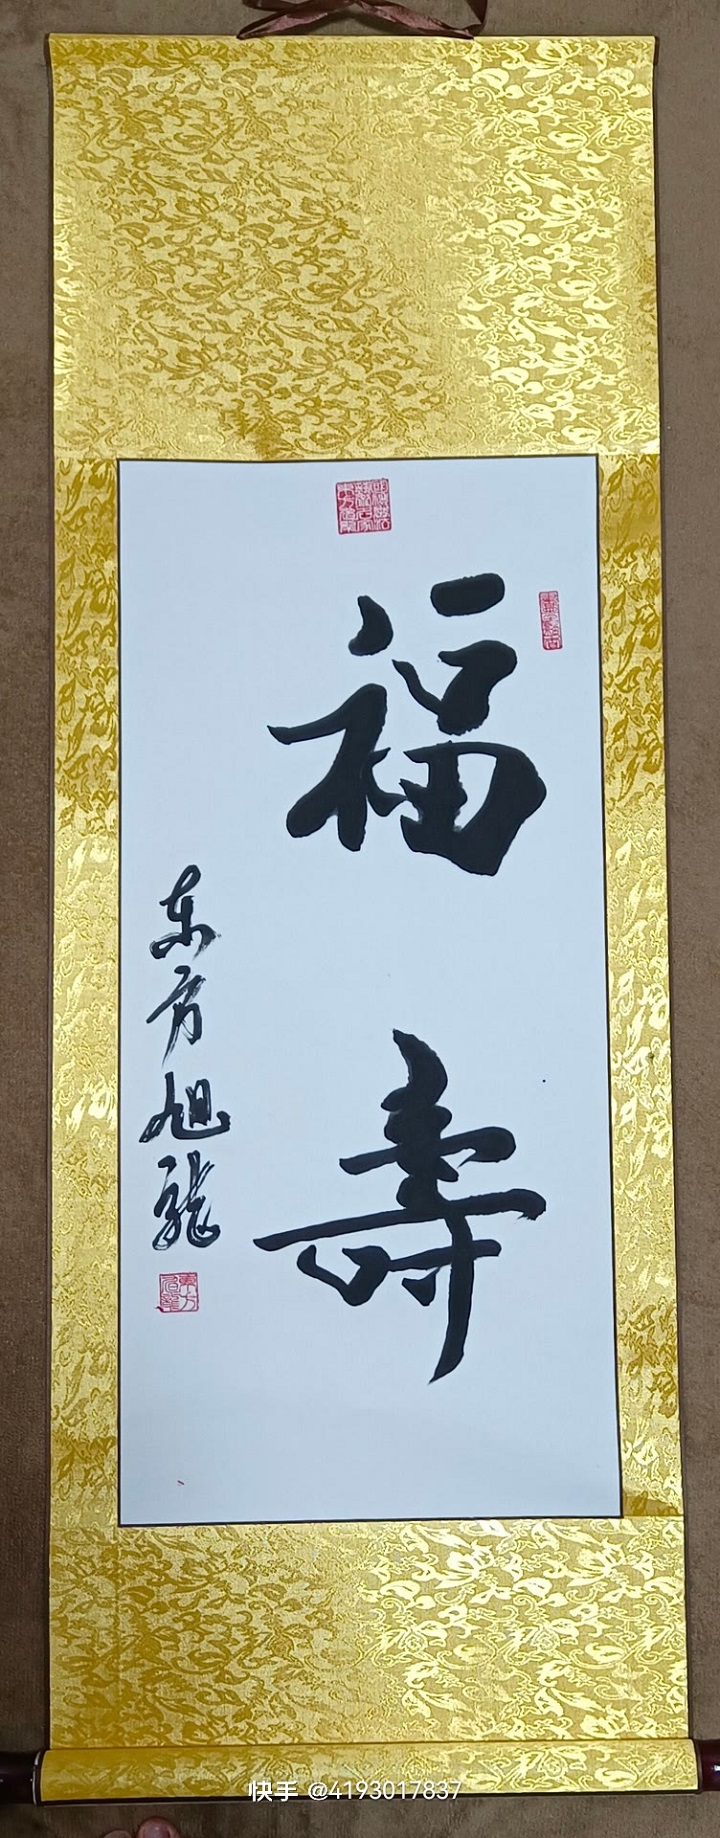 福寿
东方旭龙
快手 @4193017837